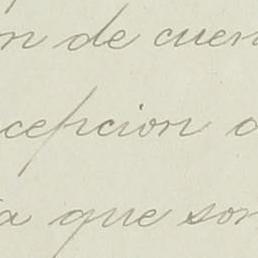 n de cuen
cepcion d
a que son